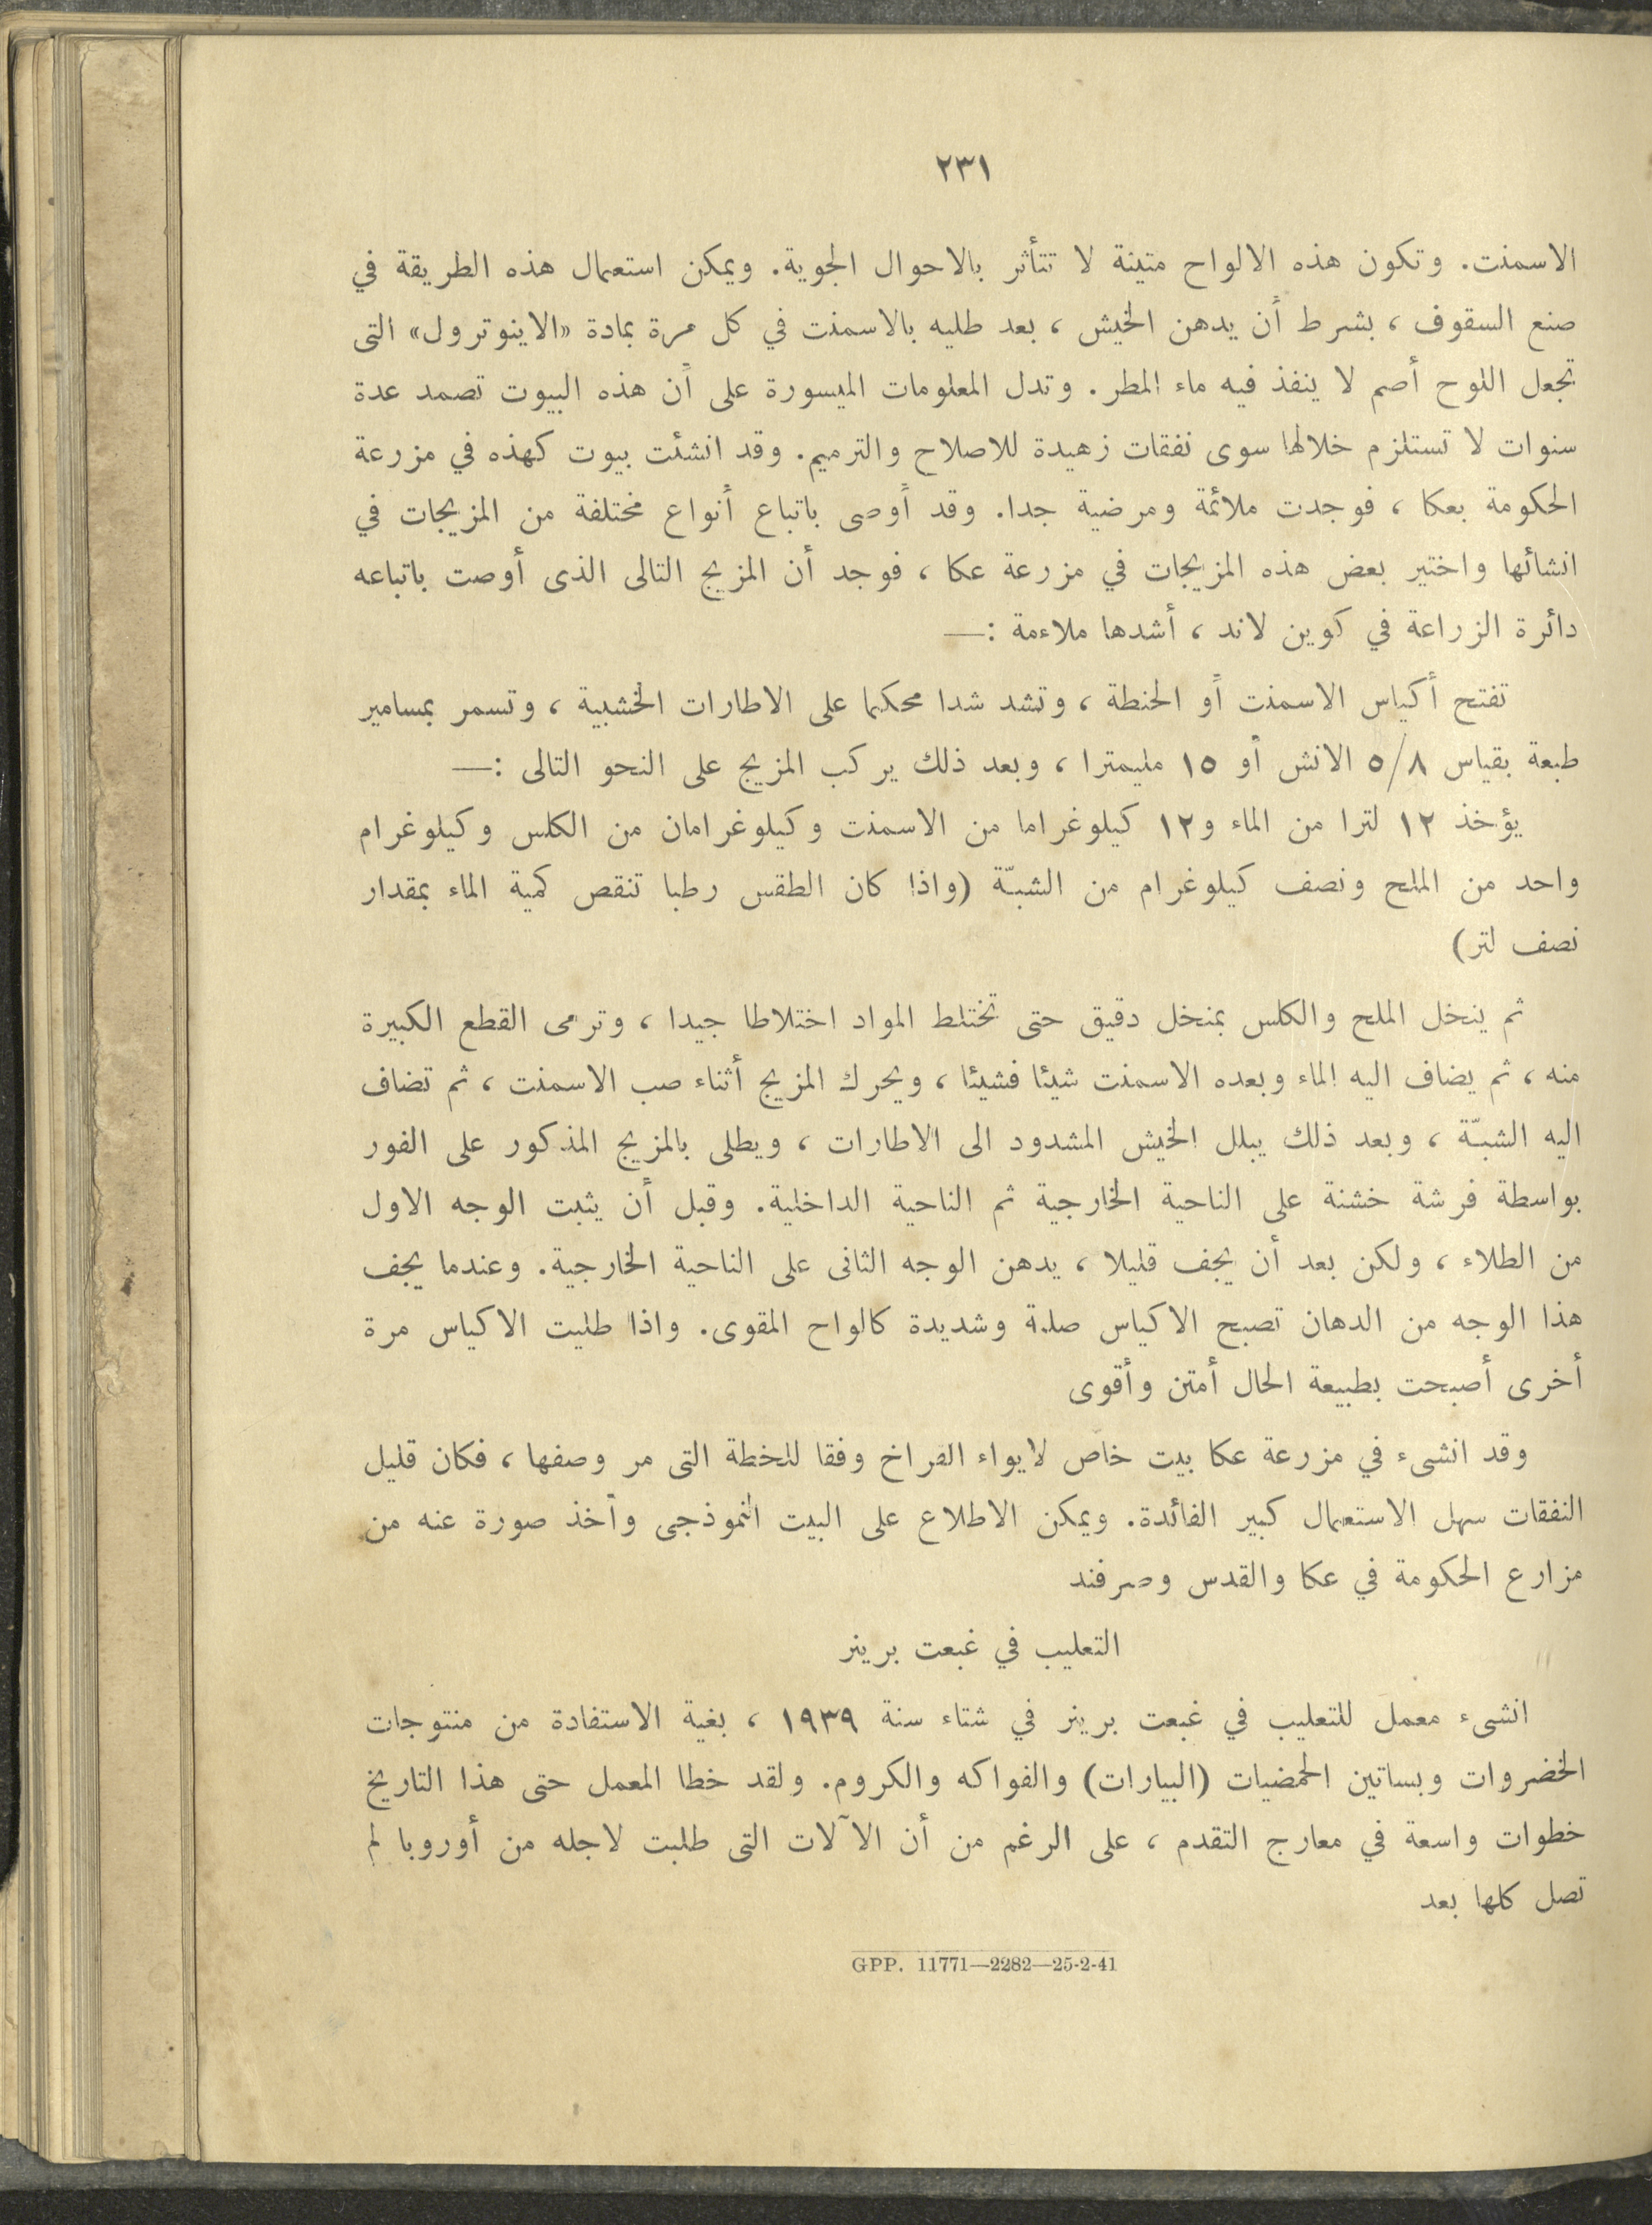 ٢٣١
الاسمنت. وتكون هذه الالواح متينة لا تتأثر بالاحوال الجوية. ويمكن استعمال هذه الطريقة في
صنع السقوف ، بشرط أن يدهن الخيش ، بعد طليه بالاسمنت في كل مرة بمادة «الاينوترول» التى
تجعل اللوح أصم لا ينفذ فيه ماء المطر. وتدل المعلومات الميسورة على أن هذه البيوت تصمد عدة
سنوات لا تستلزم خلالها سوى نفقات زهيدة للاصلاح والترميم. وقد انشئت بيوت كهذه في مزرعة
الحكومة بعكا ، فوجدت ملائمة ومرضية جدا. وقد أوصى باتباع أنواع مختلفة من المزيجات في
انشائها واختير بعض هذه المزيجات في مزرعة عكا ، فوجد أن المزيج التالى الذى أوصت باتباعه
دائرة الزراعة في كوين لاند ، أشدها ملاءمة :—
تفتح أكياس الاسمنت أو الحنطة ، وتشد شدا محكما على الاطارات الخشبية ، وتسمر بمسامير
طبعة بقياس ٥/٨ الانش أو ١٥ مليمترا ، وبعد ذلك يركب المزيج على النحو التالى :—
يؤخذ ١٢ لترا من الماء و١٢ كيلوغراما من الاسمنت وكيلوغرامان من الكلس وكيلوغرام
واحد من الملح ونصف كيلوغرام من الشبّة (واذا كان الطقس رطبا تنقص كمية الماء بمقدار
نصف لتر)
ثم ينخل الملح والكلس بمنخل دقيق حتى تختلط المواد اختلاطا جيدا ، وترمى القطع الكبيرة
منه ، ثم يضاف اليه الماء وبعده الاسمنت شيئا فشيئا ، ويحرك المزيج أثناء صب الاسمنت ، ثم تضاف
اليه الشبّة ، وبعد ذلك يبلل الخيش المشدود الى الاطارات ، ويطلى بالمزيج المذكور على الفور
بواسطة فرشة خشنة على الناحية الخارجية ثم الناحية الداخلية. وقبل أن يثبت الوجه الاول
من الطلاء ، ولكن بعد أن يجف قليلا ، يدهن الوجه الثانى على الناحية الخارجية. وعندما يجف
هذا الوجه من الدهان تصبح الاكياس صلبة وشديدة كالواح المقوى. واذا طليت الاكياس مرة
أخرى أصبحت بطبيعة الحال أمتن وأقوى
وقد انشىء في مزرعة عكا بيت خاص لايواء الفراخ وفقا للخطة التى مر وصفها ، فكان قليل
النفقات سهل الاستعمال كبير الفائدة. ويمكن الاطلاع على البيت النموذجى وأخذ صورة عنه من
مزارع الحكومة في عكا والقدس وصرفند
التعليب في غبعت برينر
انشىء معمل للتعليب في غبعت برينر في شتاء سنة ١٩٣٩ ، بغية الاستفادة من منتوجات
الخضروات وبساتين الحمضيات (البيارات) والفواكه والكروم. ولقد خطا المعمل حتى هذا التاريخ
خطوات واسعة في معارج التقدم ، على الرغم من أن الآلات التى طلبت لاجله من أوروبا لم
تصل كلها بعد
GPP. 11771—2282—25-2-41